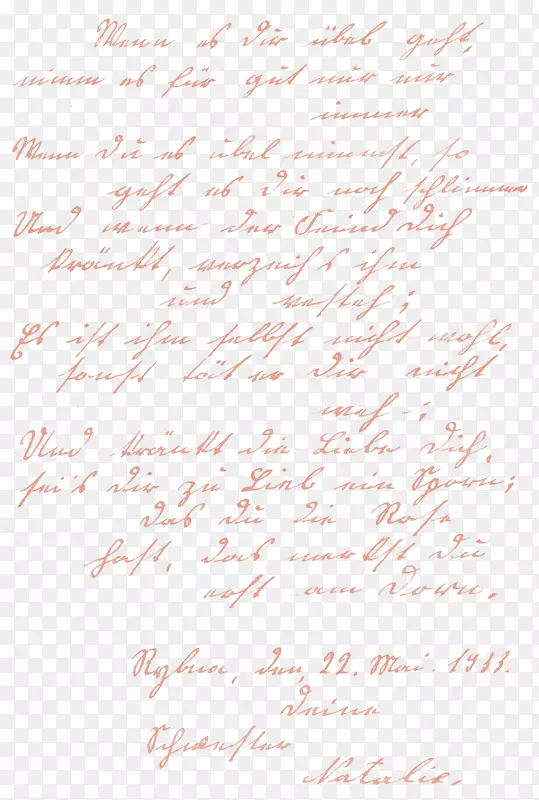 Wenn es Dir übel geht,
nimm es für gut nur nur
immer
Wenn Du es übel nimmst, so
geht es Dir noch schlimmer
Und wenn der Feind Dich
kränkt, verzeih's ihm
und versteh;
Es ist ihm selbst nicht wohl,
sonst tät er Dir nicht
weh-;
Und kränkt die Liebe Dich,
sei's Dir zu Lieb ein Sporn;
Das Du die Rose
hast, das merkst Du
erst am Dorn.
Rybna, den, 22. Mai. 1933.
Deine
Schwester
Natalie.